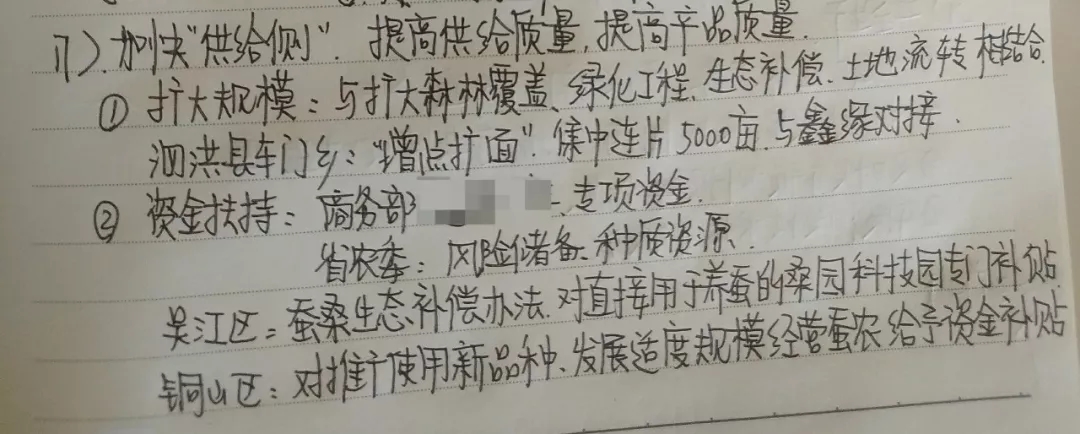 17). 加快“供给侧”. 提高供给质量, 提高产品质量.
① 扩大规模：与扩大森林覆盖、绿化工程、生态补偿、土地流转相结合.
泗洪县车门乡：“增点扩面”. 集中连片5000亩. 与鑫缘对接.
② 资金扶持：商务部 专项资金.
省农委：风险储备、种质资源.
吴江区：蚕桑生态补偿办法. 对直接用于养蚕的桑园科技园专门补贴.
铜山区：对推广使用新品种、发展适度规模经营蚕农给予资金补贴